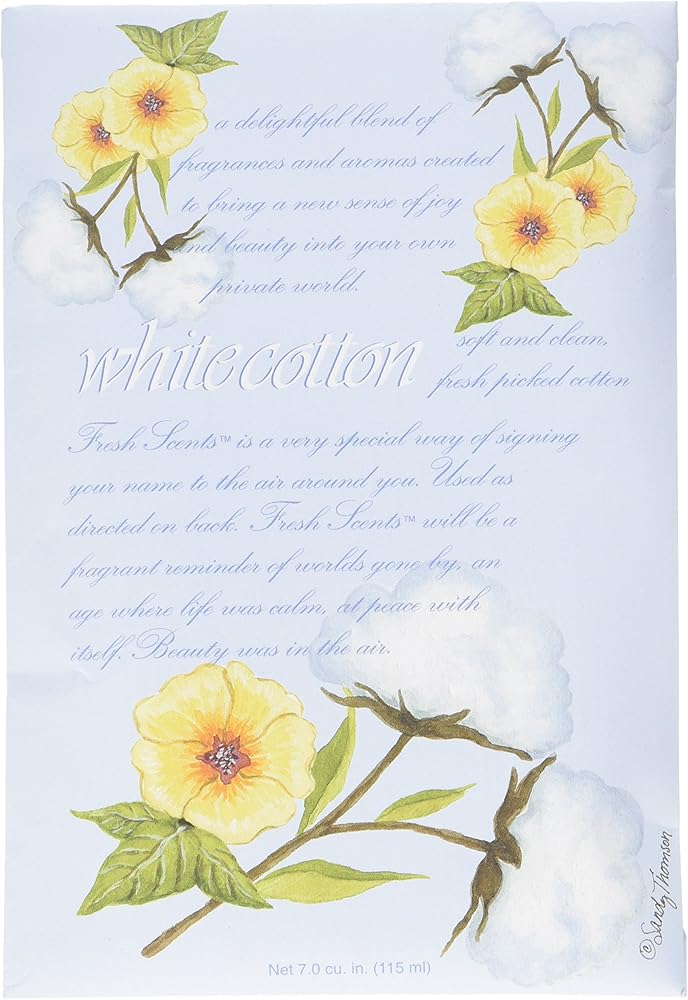 a delightful blend of
fragrances and aromas created
to bring a new sense of joy
and beauty into your own
private world.
white cotton
soft and clean,
fresh picked cotton
Fresh Scents™ is a very special way of signing
your name to the air around you. Used as
directed on back. Fresh Scents™ will be a
fragrant reminder of worlds gone by, an
age where life was calm, at peace with
itself. Beauty was in the air.
© Sandy Thomson
Net 7.0 cu. in. (115 ml)